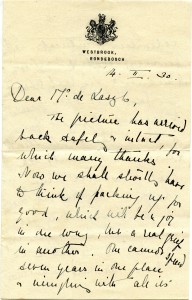 WESTBROOK,
HUNGERFORD.
14. II. 30.
Dear Mr. de Laszlo,
The picture has arrived
back safely & intact, for
which many thanks
Now we shall shortly have
to think of packing up, for
good, which will be a joy
in one way, but a real grief
in another. One cannot spend
seven years in one place
& with all its